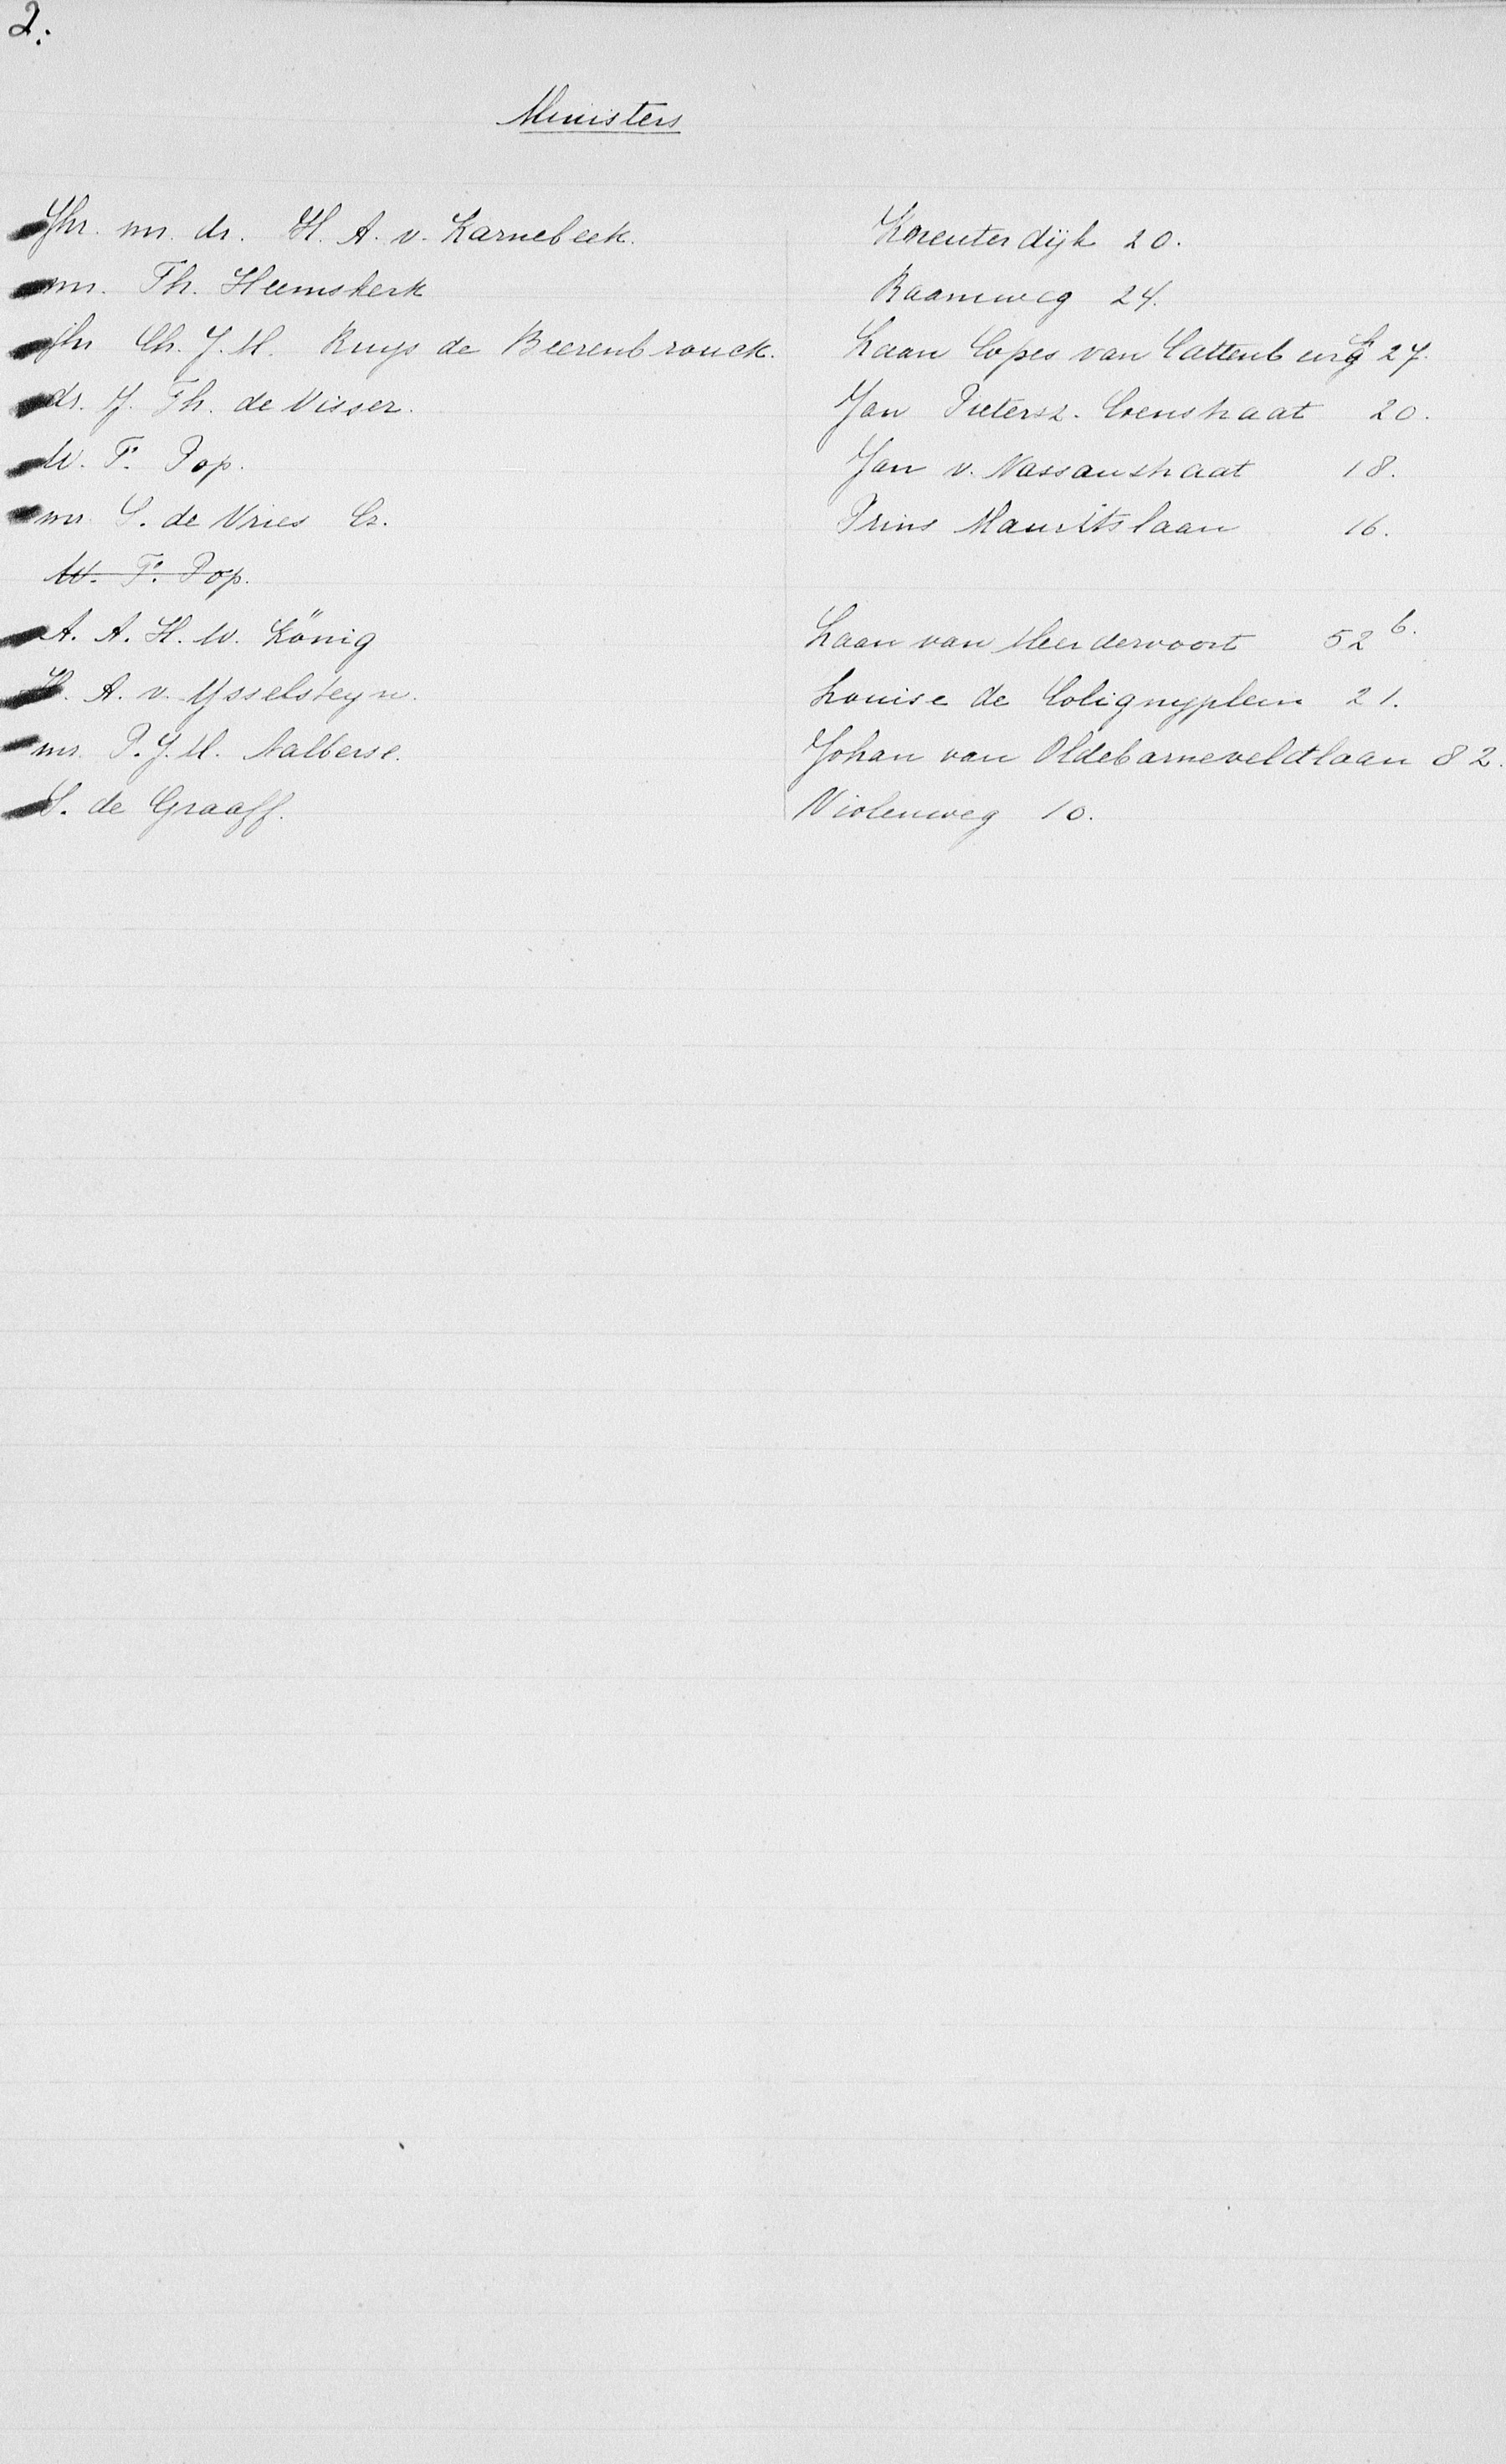 2.
Ministers
Jhr. mr. dr. H. A. v. Karnebeek. Kneuterdijk 20.
mr. Th. Heemskerk Raamweg 24.
jhr Ch. J. M. Ruys de Beerenbrouck. Laan Copes van Cattenburgh 27.
dr. J. Th. de Visser. Jan Pietersz. Coenstraat 20.
W. F. Pop. Jan v. Nassaustraat 18.
mr. S. de Vries Cz. Prins Mauritslaan 16.
W. F. Pop.
A. A. H. W. König Laan van Meerdervoort 52 b.
H. A. v. IJsselsteyn. Louise de Colignyplein 21.
mr. P. J. M. Aalberse. Johan van Oldebarneveldtlaan 82.
S. de Graaff. Violenweg 10.